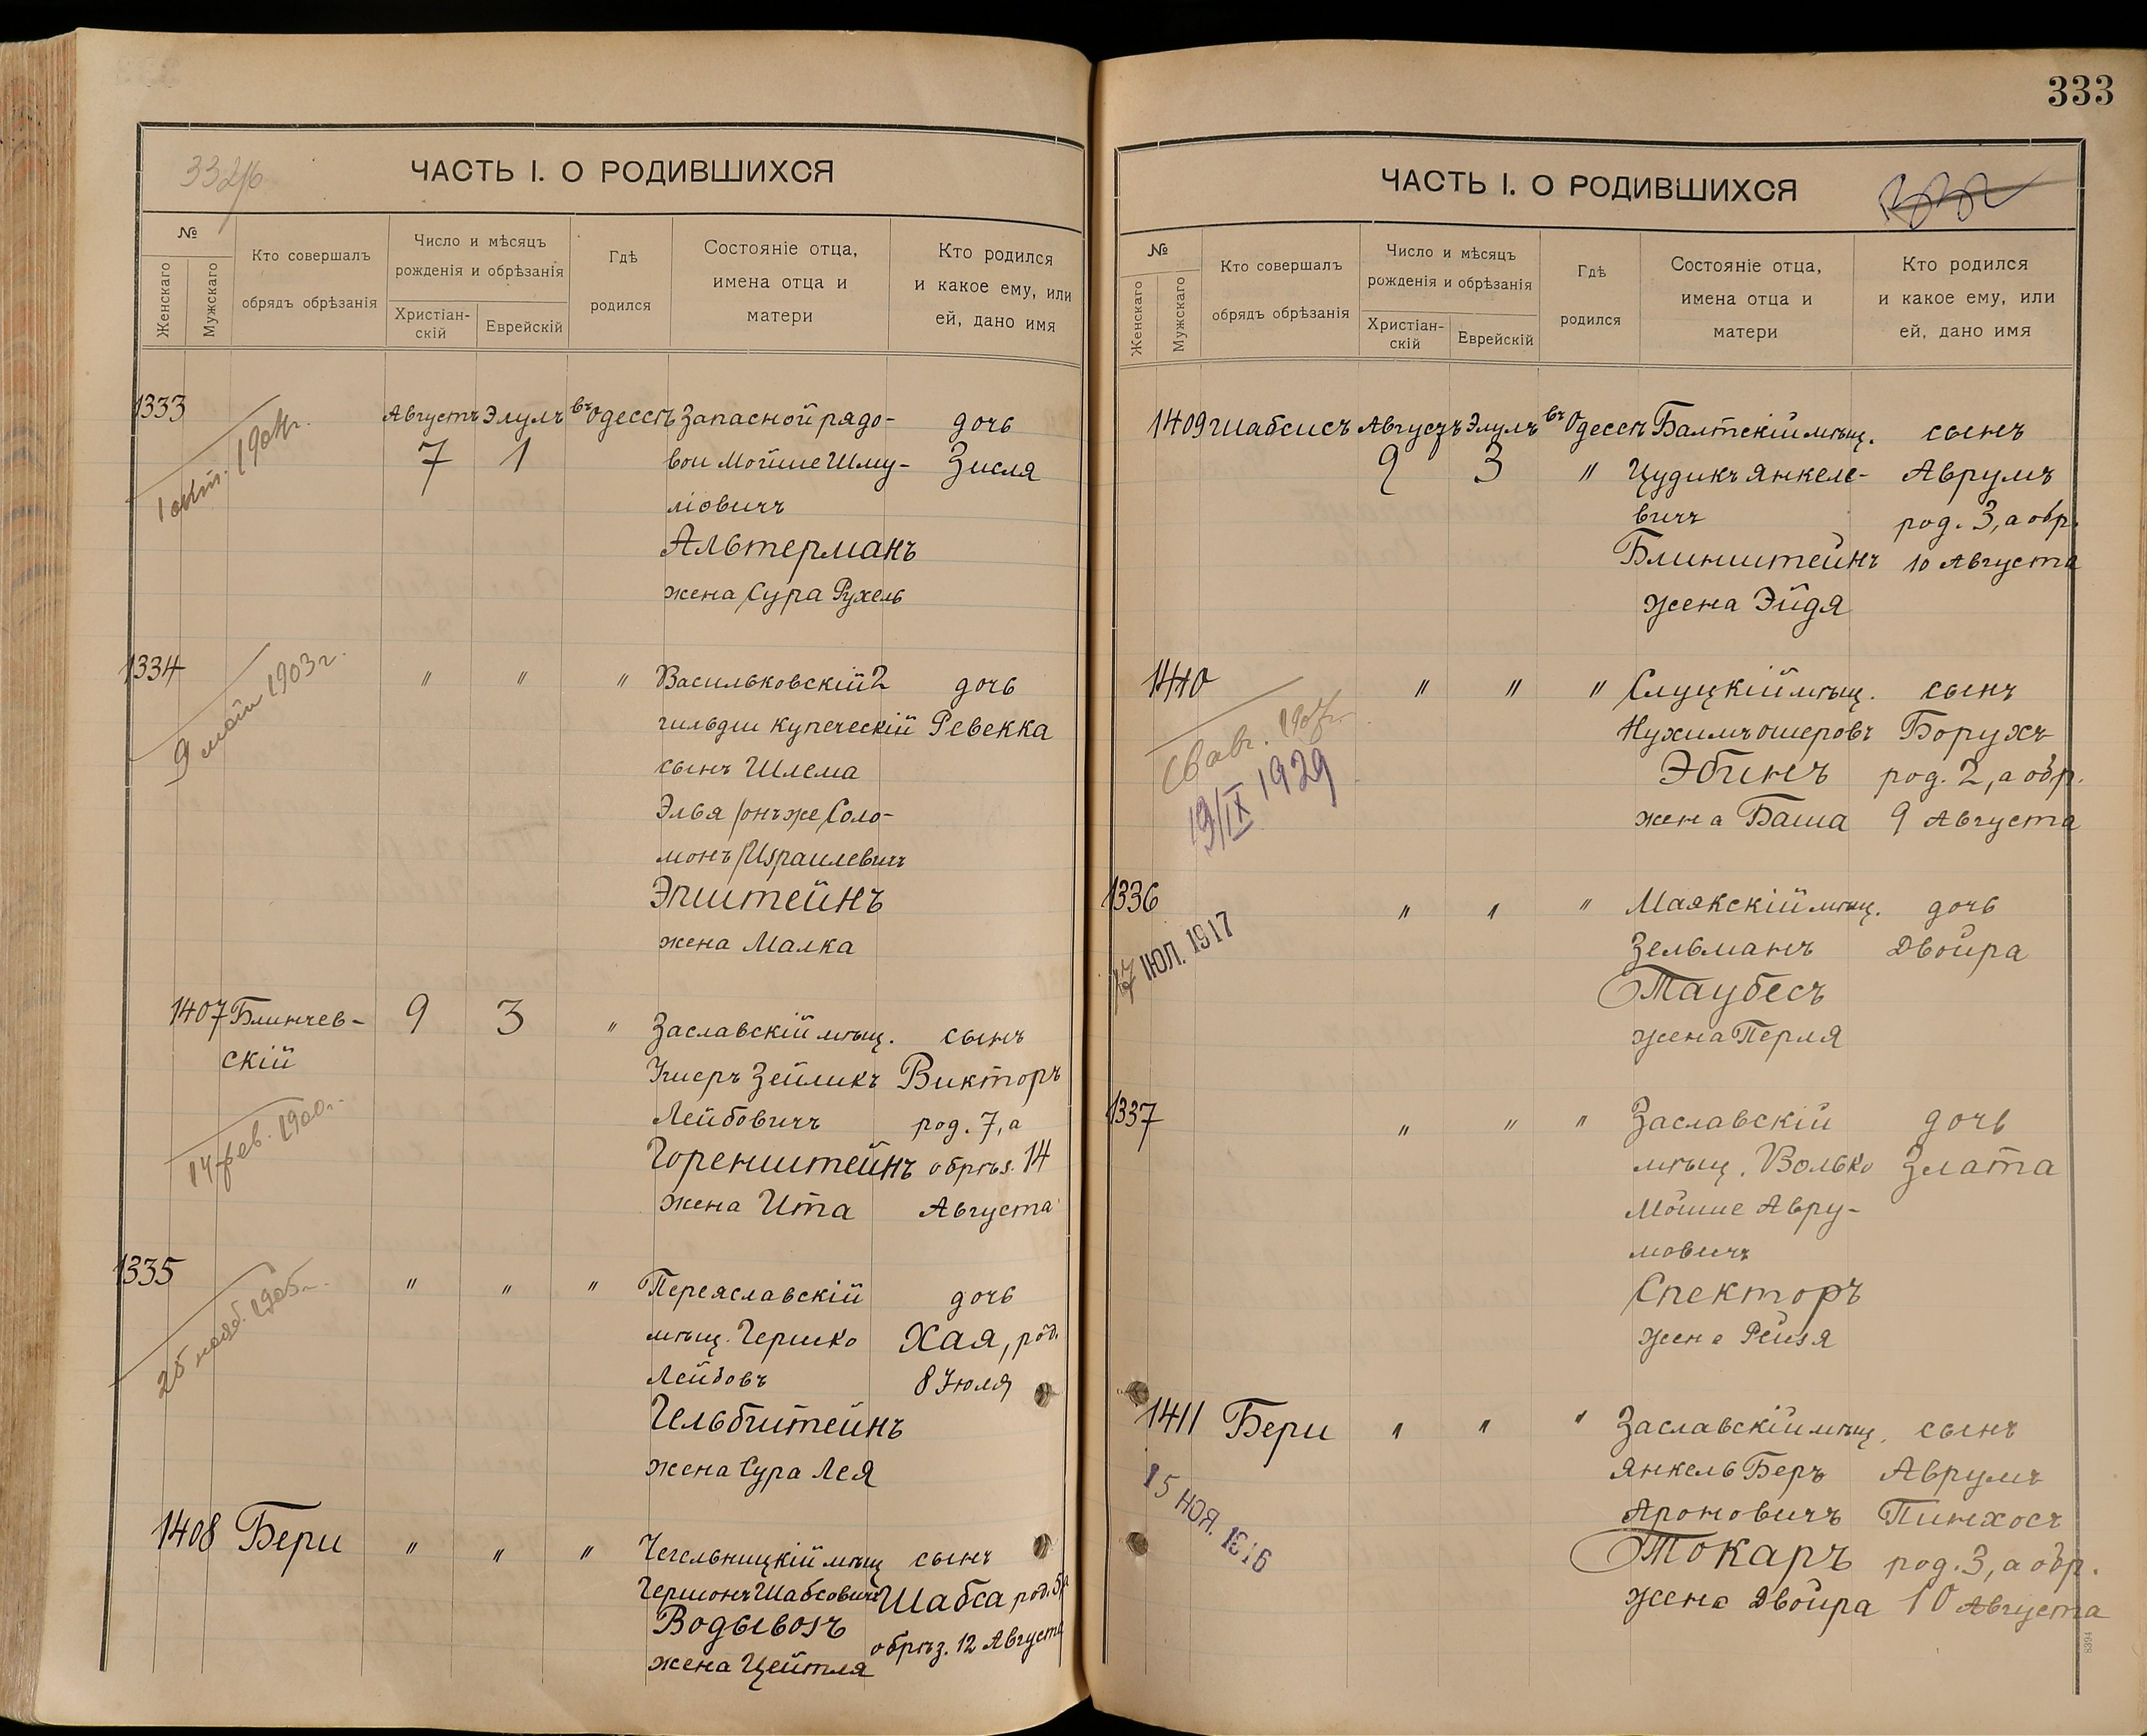 332/б
ЧАСТЬ I. О РОДИВШИХСЯ
№
Женскаго
Мужскаго
Кто совершалъ
обрядъ обрѣзанія
Число и мѣсяцъ
рожденія и обрѣзанія
Христіан-
скій
Еврейскій
Гдѣ
родился
Состояніе отца,
имена отца и
матери
Кто родился
и какое ему, или
ей, дано имя
1333 Августъ Элулъ въ Одессѣ Запасной рядо- дочь
7 1 вои Мойше Шму- Зисля
1 окт. 1904г.
ліовичъ
Альтерманъ
жена Сура Рухель
1334 " " " Васильковскій 2 дочь
9 мая 1903 г.
гильдіи купеческій Ревекка
сынъ Шлема
Элья /онъ же Соло-
монъ/ Израилевичъ
Эпштейнъ
жена Малка
1407 Блинчев- 9 3 " Заславскій мѣщ. сынъ
скій Ушеръ Зейликъ Викторъ
14 фев. 1900г.
Лейбовичъ род. 7, а
Горенштейнъ обрѣз. 14
жена Ита Августа
1335 " " " Переяславскій дочь
25 нояб. 1905г.
мѣщ. Гершко Хая, род.
Лейбовъ 8 Іюля
Гельбштейнъ
жена Сура Лея
1408 Бери " " " Чечельницкій мѣщ сынъ
Гершонъ Шабсовичъ Шабса род. 5, а
Водывозъ обрѣз. 12 Августа
жена Цейтля
333
ЧАСТЬ I. О РОДИВШИХСЯ
№
Женскаго
Мужскаго
Кто совершалъ
обрядъ обрѣзанія
Число и мѣсяцъ
рожденія и обрѣзанія
Христіан-
скій
Еврейскій
Гдѣ
родился
Состояніе отца,
имена отца и
матери
Кто родился
и какое ему, или
ей, дано имя
1409 Шабсисъ Августъ Элулъ въ Одессѣ Балтскій мѣщ. сынъ
9 3 " Цудикъ Янкеле- Аврумъ
вичъ род. 3, а обр.
Блинштейнъ 10 Августа
жена Эйдя
1410 " " " Слуцкій мѣщ. сынъ
Нухимъ Ошеровъ Борухъ
авг. 1907г.
Эбинъ род. 2, а обр.
19/IX 1929
жена Баша 9 Августа
1336 " " " Маякскій мѣщ. дочь
Зельманъ Двойра
ІЮЛ. 1917
Таубесъ
жена Перля
1337 " " " Заславскій дочь
мѣщ. Волько Злата
Мойше Авру-
мовичъ
Спекторъ
жена Рейзя
1411 Бери " " " Заславскій мѣщ. сынъ
Янкель Беръ Аврумъ
15 НОЯ. 1916
Ароновичъ Пинхосъ
Токаръ род. 3, а обр.
жена Двойра 10 Августа
8394